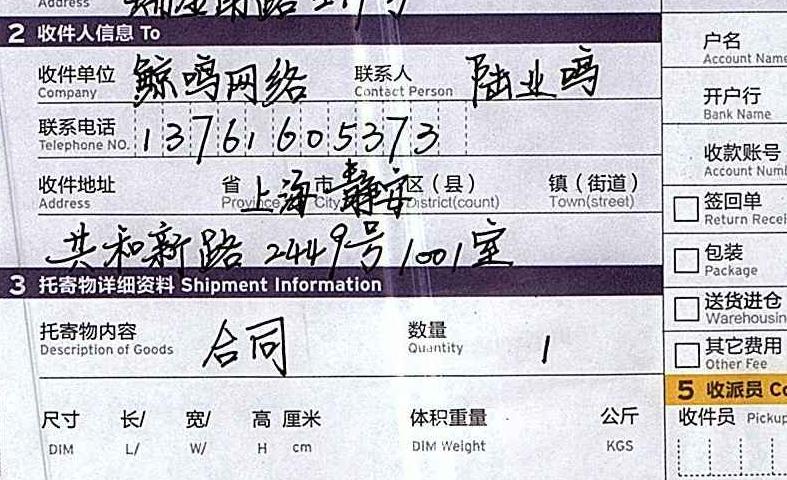 Address
2 收件人信息 To
收件单位 Company 鲸鸣网络 联系人 Contact Person 陆业鸣
联系电话 Telephone NO. 13761605373
收件地址 Address 省 Province 上海 市 City 静安 区（县） District(count) 镇（街道） Town(street)
共和新路 2449号1001室
3 托寄物详细资料 Shipment Information
托寄物内容 Description of Goods 合同 数量 Quantity 1
尺寸 DIM 长/ L/ 宽/ W/ 高 H 厘米 cm 体积重量 DIM Weight 公斤 KGS
户名
Account Name
开户行
Bank Name
收款账号
签回单
包装
Package
送货进仓
其它费用
Other Fee
5 收派员
收件员 Pickup